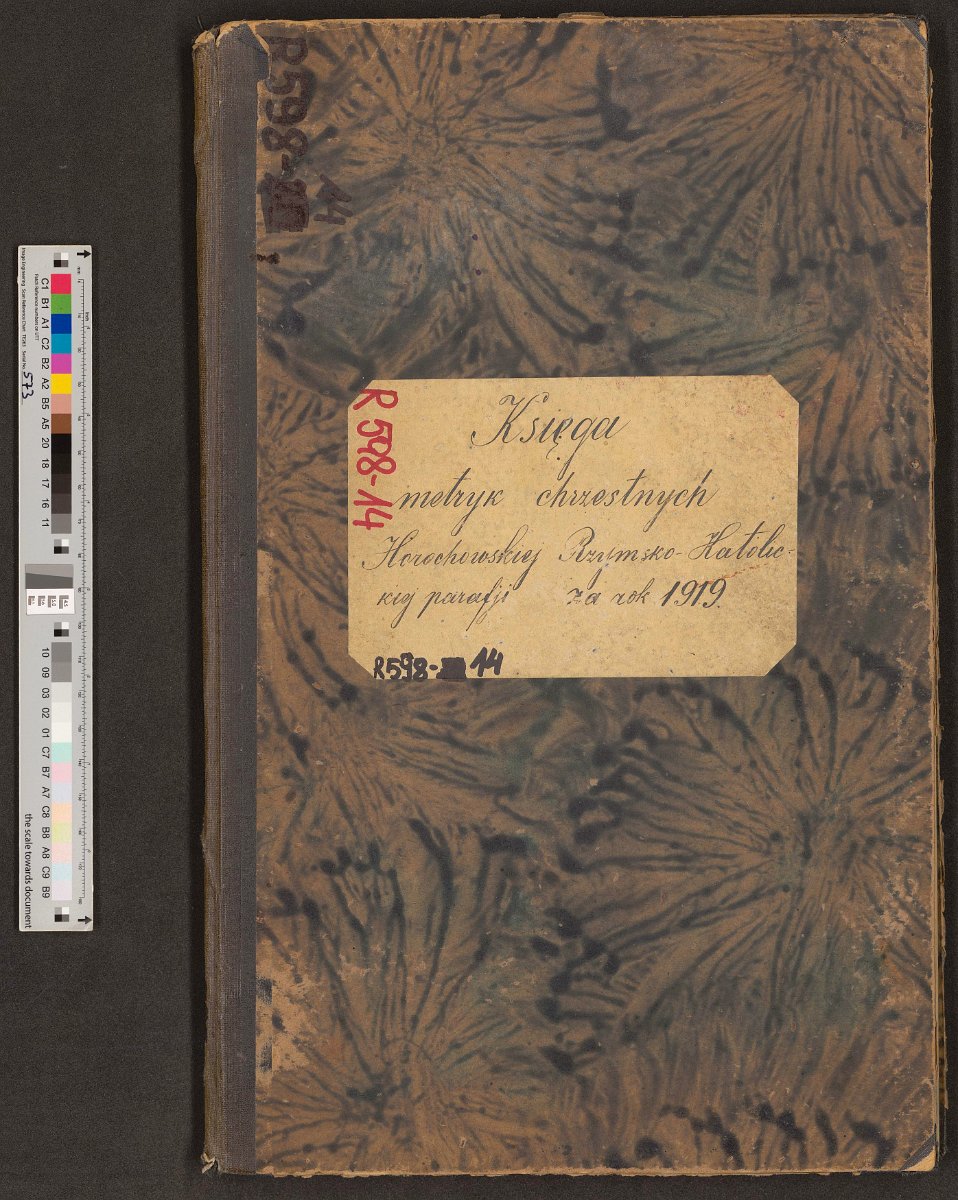 R598-
14
Księga
metryk chrzestnych
Horochowskiej Rzymsko-Katolic-
kiej parafji za rok 1919.
R598-14
R598- 14
573
C1 B1 A1 C2 B2 A2 B5 A5 20 18 17 16 11
10 09 03 02 01 C7 B7 A7 C8 B8 A8 C9 B9
the scale towards document